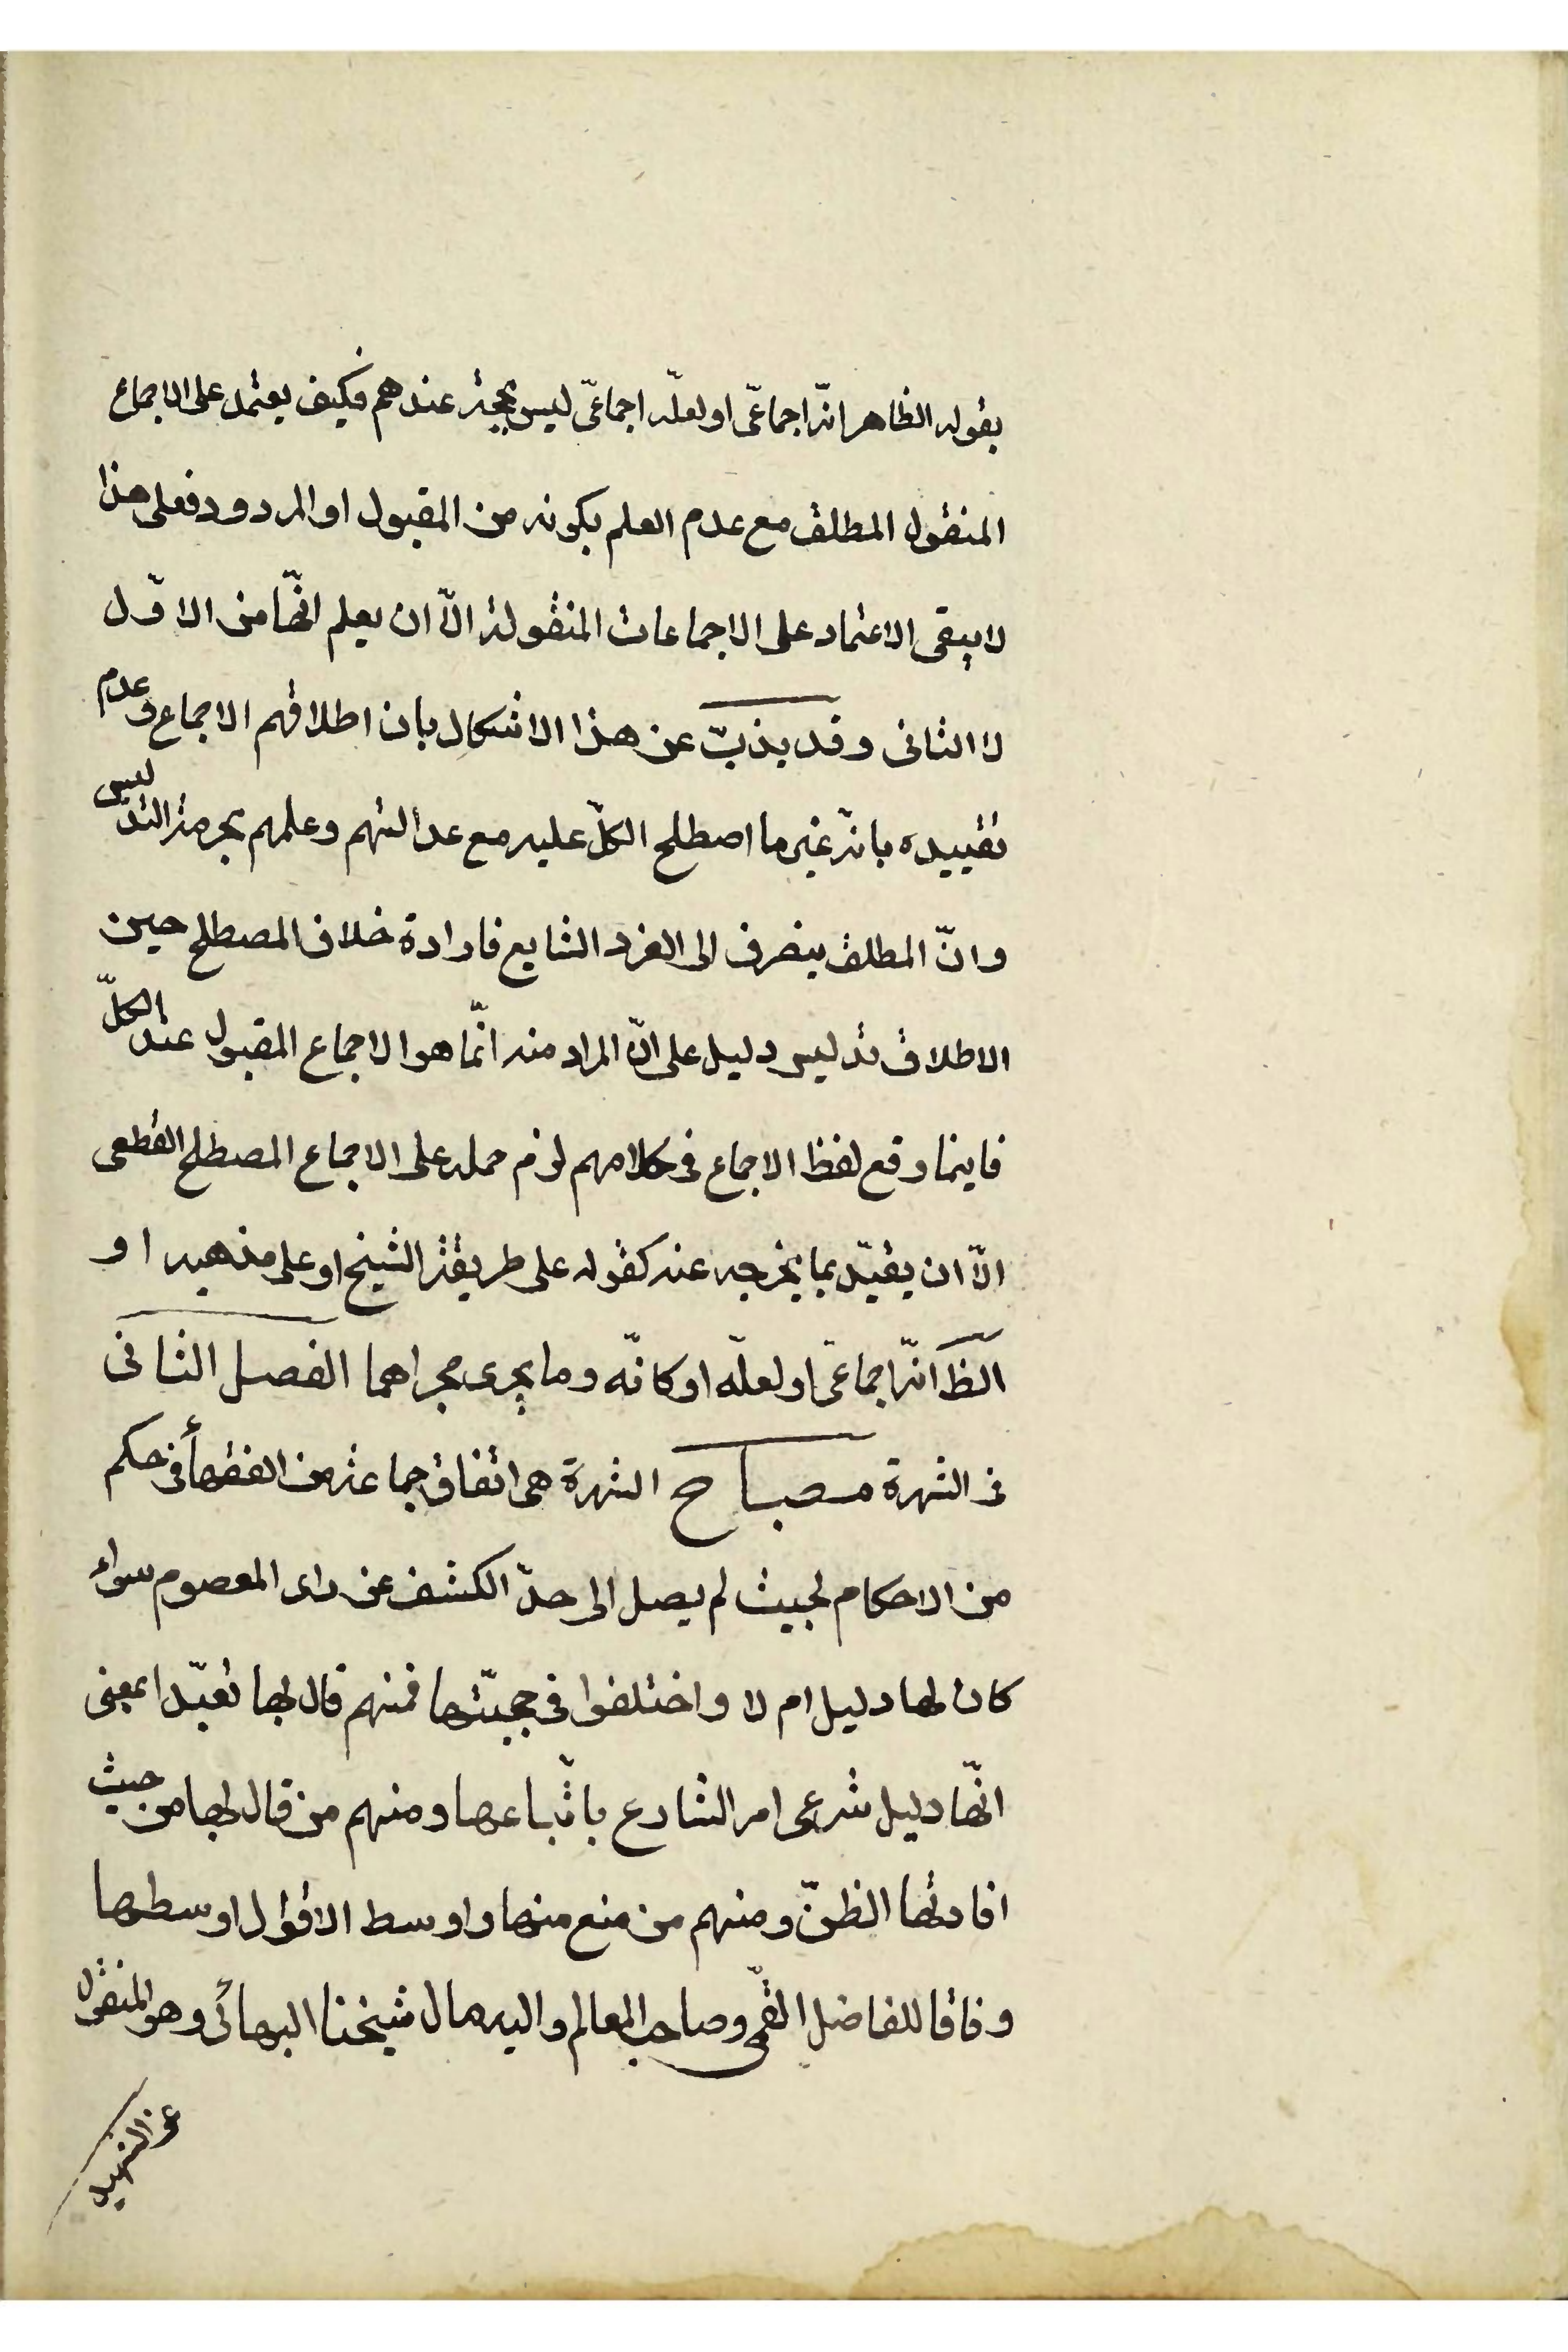 بقوله الظاهر انّه اجماعّى او لعلّه اجماعّى ليس بحجة عندهم فكيف يعتمد على الاجماع
المنقول المطلق مع عدم العلم بكونه من المقبول او المردود فعلى هذا
لا يبقى الاعتماد على الاجماعات المنقولة الّا ان يعلم انّها من الاوّل
لا الثانى وقد يذبّ عن هذا الاشكال بان اطلاقهم الاجماع وعدم
تقييده بانّه غير ما اصطلح الكلّ عليه مع عدالتهم وعلمهم بحرمة التدليس
وانّ المطلق ينصرف الى الفرد الشايع فارادة خلاف المصطلح حين
الاطلاق تدليس دليل على انّ المراد منه انّما هو الاجماع المقبول عند الكلّ
فاينما وقع لفظ الاجماع فى كلامهم لزم حمله على الاجماع المصطلح القطعى
الّا ان يقيّد بما يخرجه عنه كقوله على طريقة الشيخ او على مذهبه او
الظ انّه اجماعّى او لعلّه او كانّه وما يجرى مجراهما الفصل الثانى
فى الشهرة مصباح الشهرة هى اتفاق جماعة من الفقهأ فى حكم
من الاحكام بحيث لم يصل الى حدّ الكشف عن راى المعصوم سواء
كان لها دليل ام لا واختلفوا فى حجيّتها فمنهم قال بها تعبّدا بمعنى
انّها دليل شرعى امر الشارع باتّباعها ومنهم من قال بها من حيث
افادتها الظنّ ومنهم من منع منها واوسط الاقوال اوسطها
وفاقا للفاضل القمّى وصاحب المعالم واليه مال شيخنا البهائى وهو المنقول
عن الشهيد